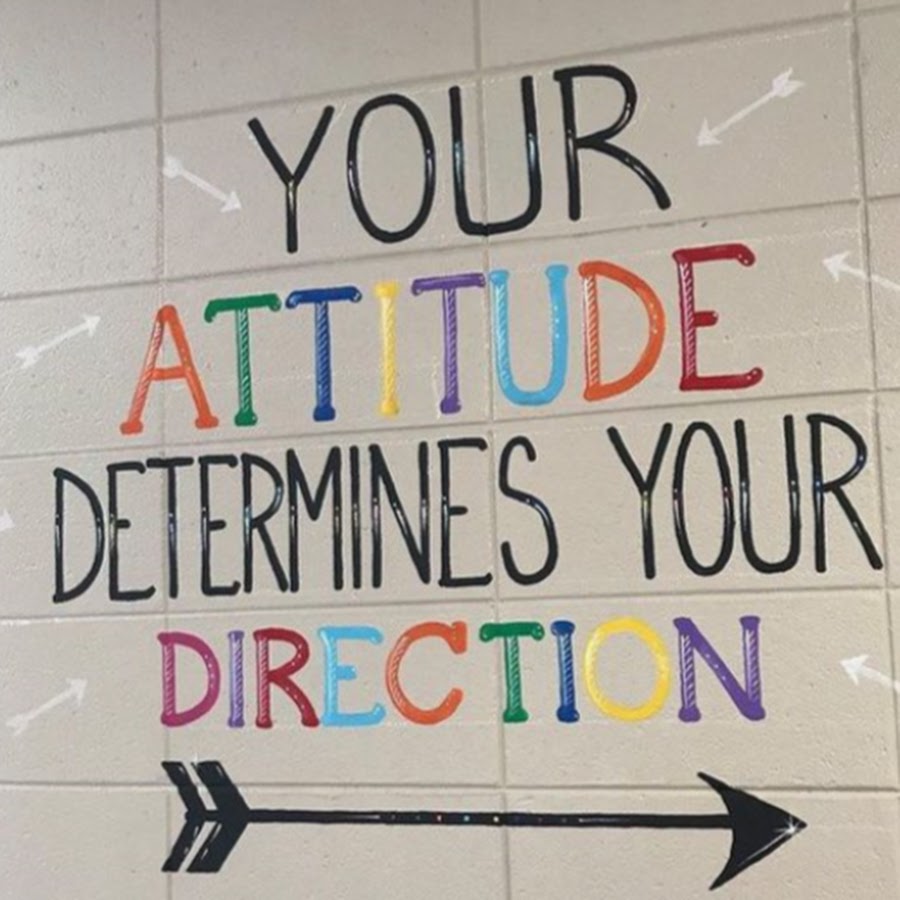 YOUR
ATTITUDE
DETERMINES YOUR
DIRECTION